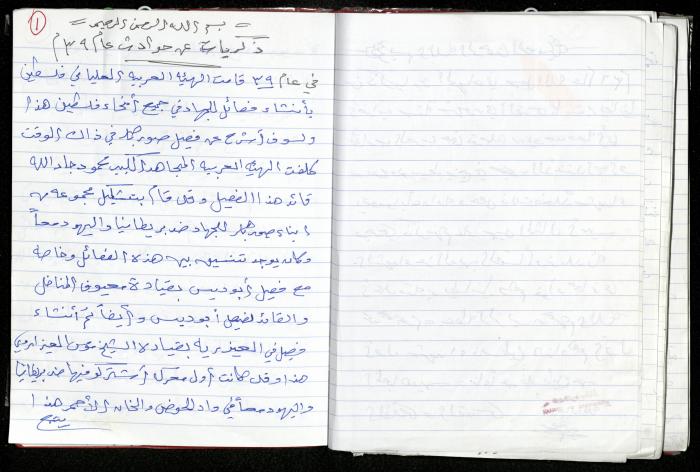 ١
= بسم الله الرحمن الرحيم =
ذكريات عن حوادث عام ٣٩م
في عام ٣٩ قامت الهيئه العربيه العليا في فلسطين
بأنشاء فصائل للجهاد في جميع أنحاء فلسطين هذا
ولسوف أشرح عن فصيل صورباهر في ذاك الوقت
كلفت الهيئه العربيه المجاهد الكبير محمود جاد الله
قائد هذا الفصيل وقد قام بتشكيل مجموعه من
ابناء صورباهر للجهاد ضد بريطانيا واليهود معاً
وكان يوجد تنسيق بين هذه الفصائل وخاصه
مع فصيل أبوديس بقيادة معيوف المناضل
والقائد لفصيل أبوديس وأيضاً تم أنشاء
فصيل في العيزريه بقيادة الشيخ العيزاروي
هذا وقد كانت أول معركه أشتركو فيها ضد بريطانيا
واليهود معاً في واد الحوض والخان الأحمر هذا
يتبع